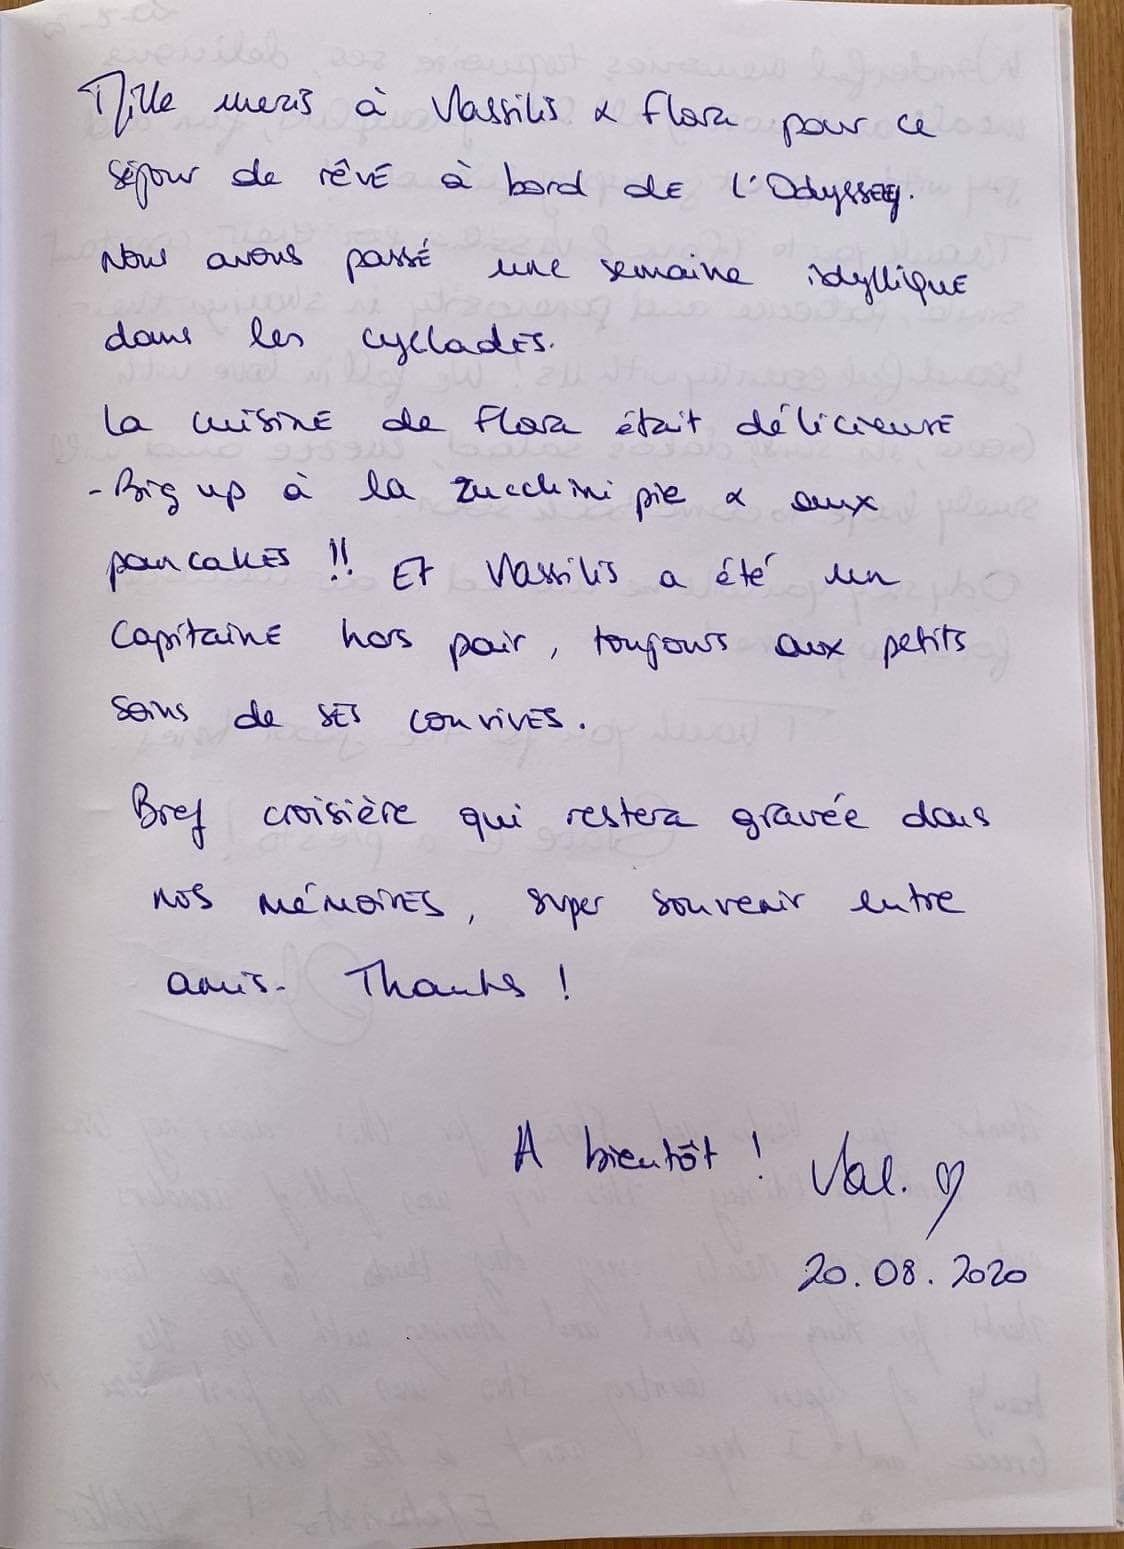 Mille mercis à Vassilis & Flora pour ce
séjour de rêve à bord de l'Odyssey.
Nous avons passé une semaine idyllique
dans les cyclades.
La cuisine de Flora était délicieuse
- Big up à la zucchini pie & aux
pancakes !! Et Vassilis a été un
Capitaine hors pair, toujours aux petits
soins de ses convives.
Bref croisière qui restera gravée dans
nos mémoires, super souvenir entre
amis. Thanks !
A bientôt ! Val. ♡
20.08.2020